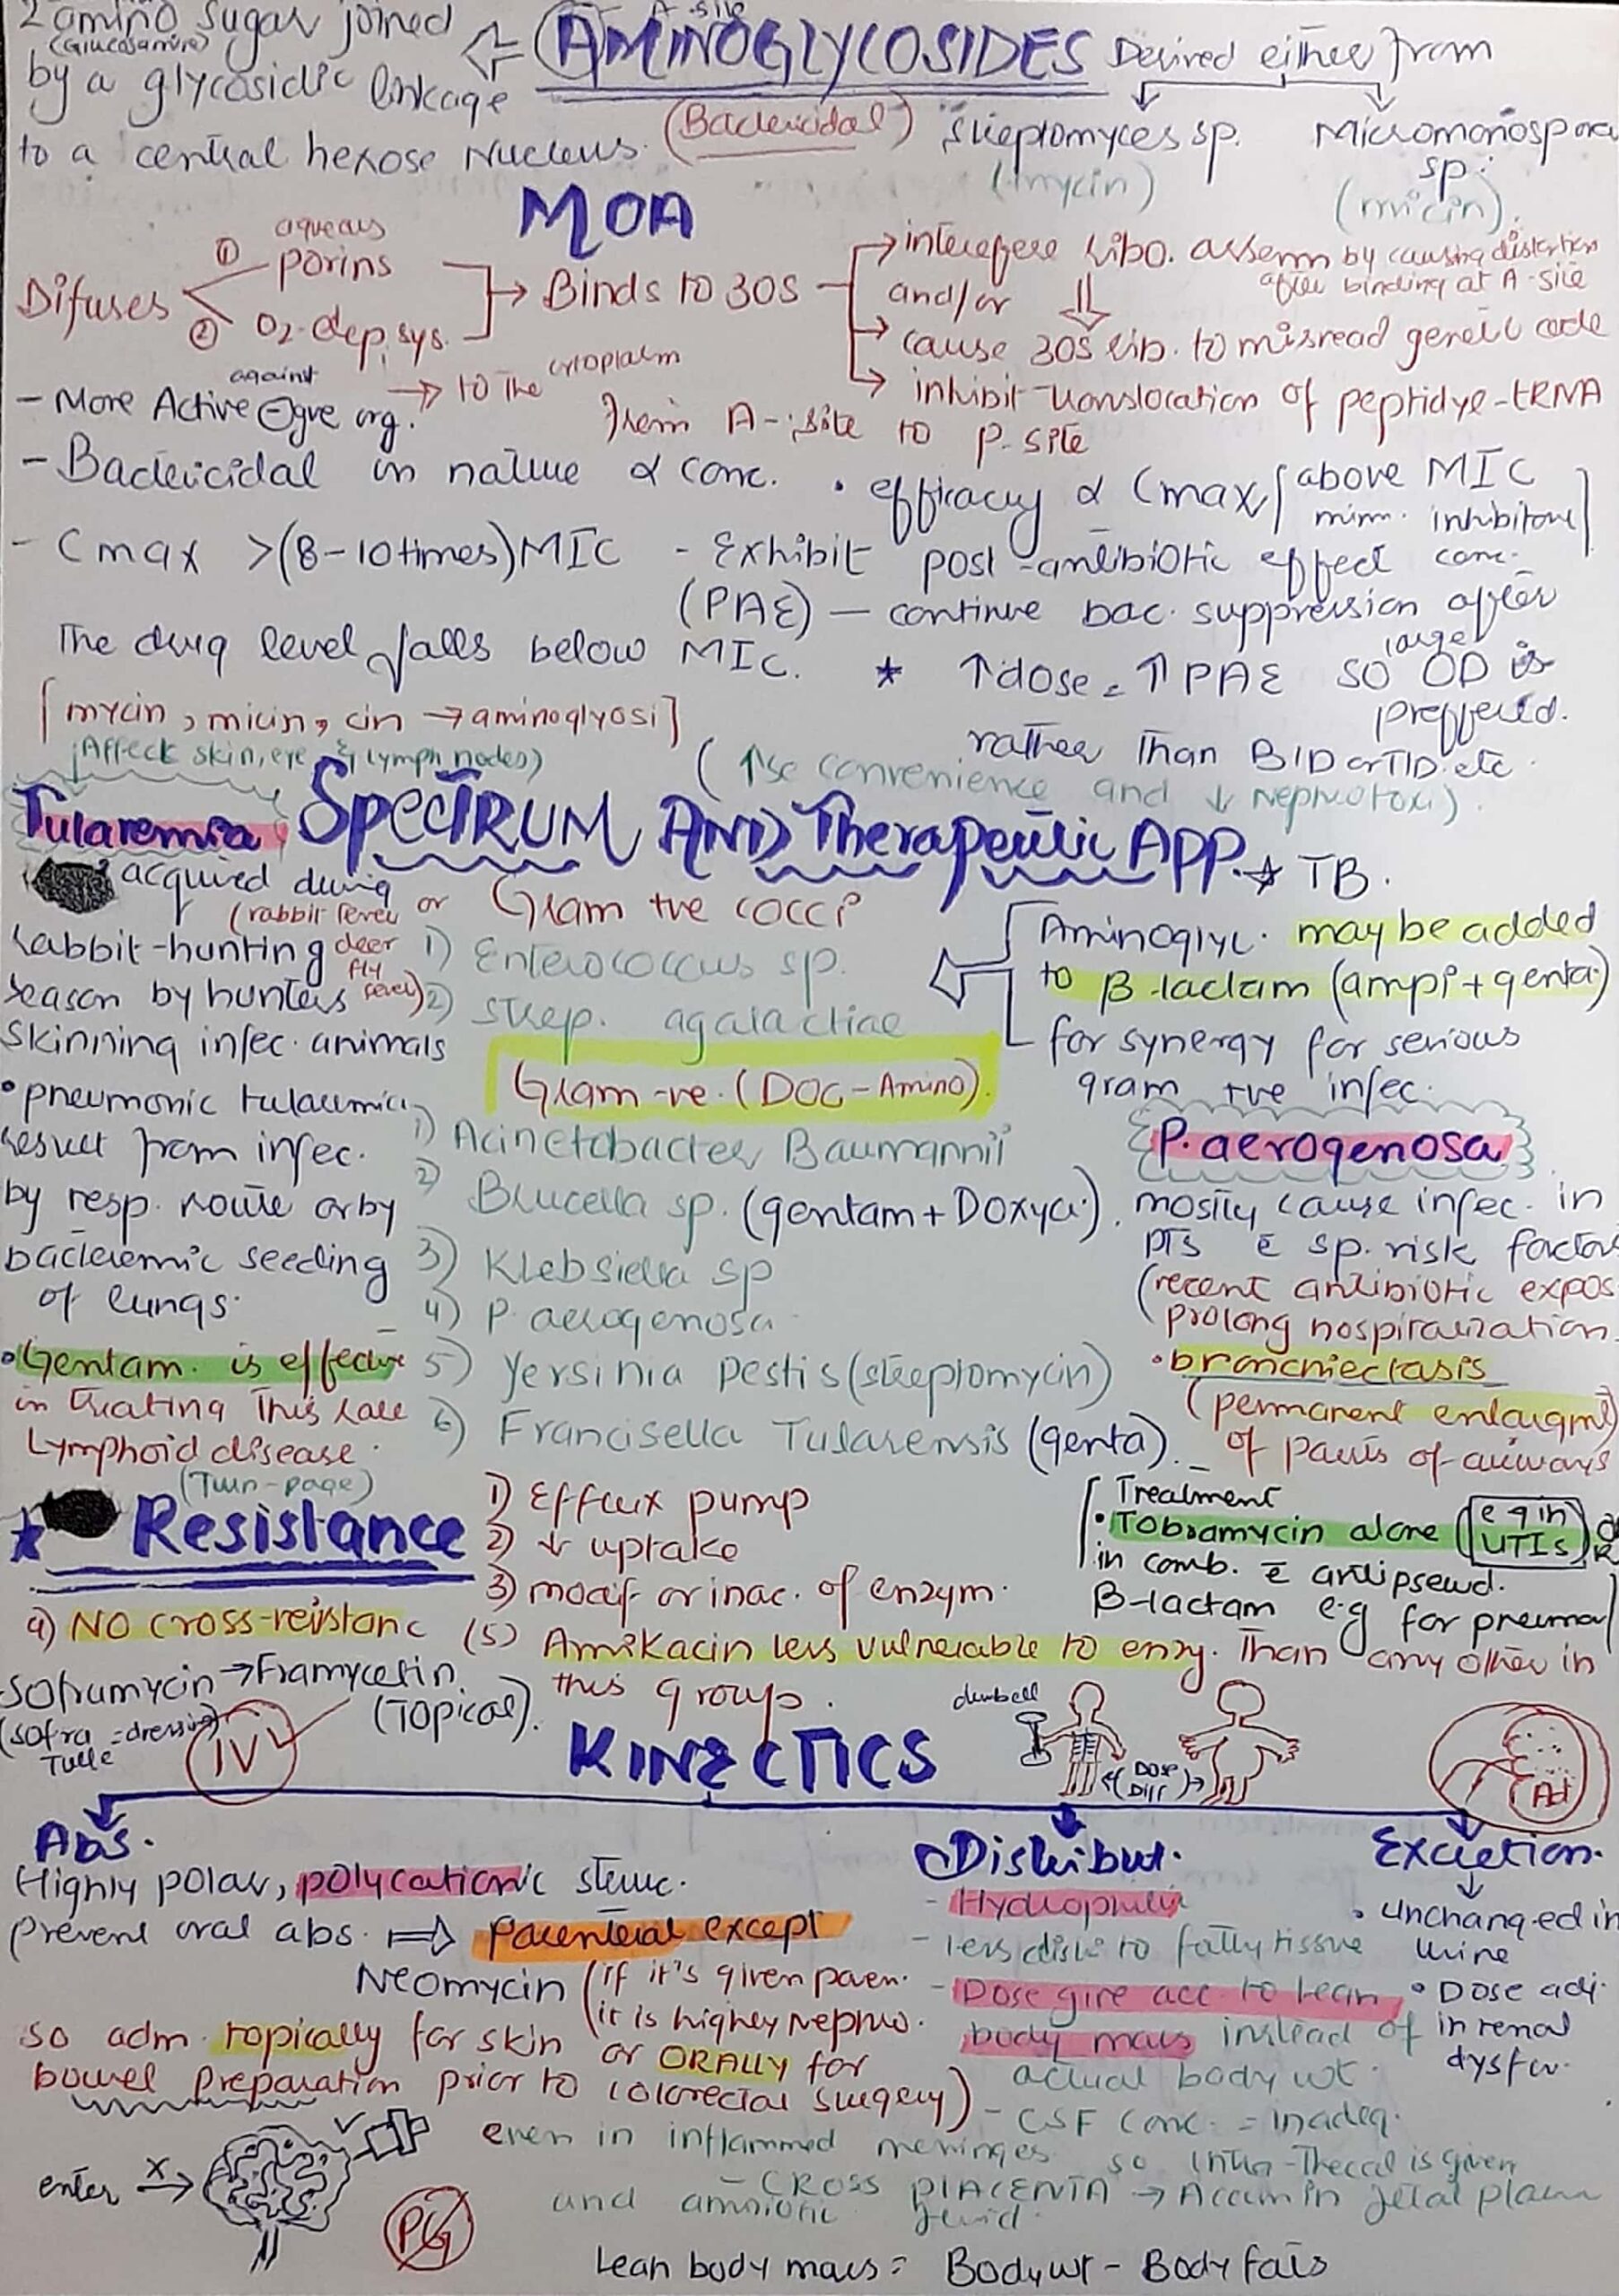 2 amino sugar joined
(Glucosamine)
by a glycosidic linkage
to a central hexose Nucleus.
A-site
AMINOGLYCOSIDES
(Bactericidal)
Derived either from
Streptomyces sp.
(mycin)
Micromonospora
sp.
(micin).
MOA
Difuses
① aqueous
porins
② O2-dep. sys.
→ to the cytoplasm
Binds to 30S
interefere ribo. assem by causing distortion
after binding at A-site
and/or
cause 30S rib. to misread genetic code
inhibit translocation of peptidye-tRNA
from A-site to P-site
- More Active against ⊖gve org.
- Bactericidal in nature α conc.
• efficacy α Cmax [above MIC
mim. inhibitory
conc.]
- Cmax >(8-10times) MIC
- Exhibit post-antibiotic effect
(PAE) — continue bac. suppression after
The drug level falls below MIC.
* ↑dose = ↑PAE so large OD is
preffered.
rather Than BID or TID etc.
(↑se convenience and ↓ nephrotoxi).
[mycin, micin, cin → aminoglyosi]
(Affect skin, eye & lymph nodes)
Tularemia
SPECTRUM AND Therapeutic APP.
acquired during
(rabbit fever or
deer fly fever)
rabbit-hunting
season by hunters
skinning infec. animals
• pneumonic tulaemia
result from infec.
by resp. route or by
bacteremic seeding
of lungs.
• Gentam. is effective
in treating This rare
Lymphoid disease.
Gram +ve cocci
1) Enterococcus sp.
2) Strep. agalactiae
Gram -ve. (DOC-Amino).
1) Acinetobacter Baumannii
2) Brucella sp. (gentam + Doxyc.).
3) Klebsiella sp
4) P. aerogenosa
5) Yersinia pestis (streptomycin)
6) Francisella Tularensis (genta).
* TB.
Aminoglyc. may be added
to β-lactam (ampi + genta)
for synergy for serious
gram +ve infec.
P. aerogenosa
mostly cause infec. in
pts c̄ sp. risk factor
(recent antibiotic expos
prolong hospitalization.
• bronchiectasis
(permanent enlargmt)
of parts of airways
Treatment
• Tobramycin alone (e.g in UTIs) or
in comb. c̄ antipseud.
β-lactam e.g for pneumo
(Turn-page)
* Resistance
1) Efflux pump
2) ↓ uptake
3) modif or inac. of enzym.
4) NO Cross-reistanc
(5) Amikacin less vulnerable to enzy. Than any other in
this group.
Soframycin → Framycetin
(Topical).
(sofra = dressing)
Tulle
IV ✓
KINECTICS
dumbell
(Dose
Diff)
Abs.
Highly polar, polycationic struc.
prevent oral abs. ⇒ Parenteral except
Neomycin (if it's given paren.
it is highly Nephro.
so adm topically for skin or ORALLY for
bowel preparation prior to colorectal surgery)
Distribut.
- Hydrophilic
- less distr to fatty tissue
- Dose give acc to lean
body mass instead of
actual body wt.
- CSF conc. = inadeq.
even in inflammed meninges so Intra-Thecal is given
- CROSS PLACENTA → Accum in fetal plasm
and amniotic fluid.
Excretion.
• Unchanged in
urine
• Dose adj.
in renal
dysfu.
enter X →
PG
Lean body mass = Body wt - Body fats